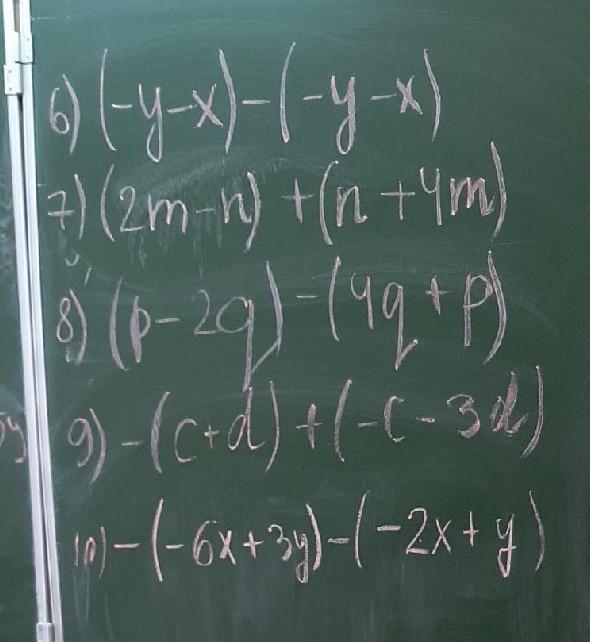 6) (-y-x)-(-y-x)
7) (2m-n)+(n+4m)
8) (p-2q)-(4q+p)
9) -(c+d)+(-c-3d)
10) -(-6x+3y)-(-2x+y)